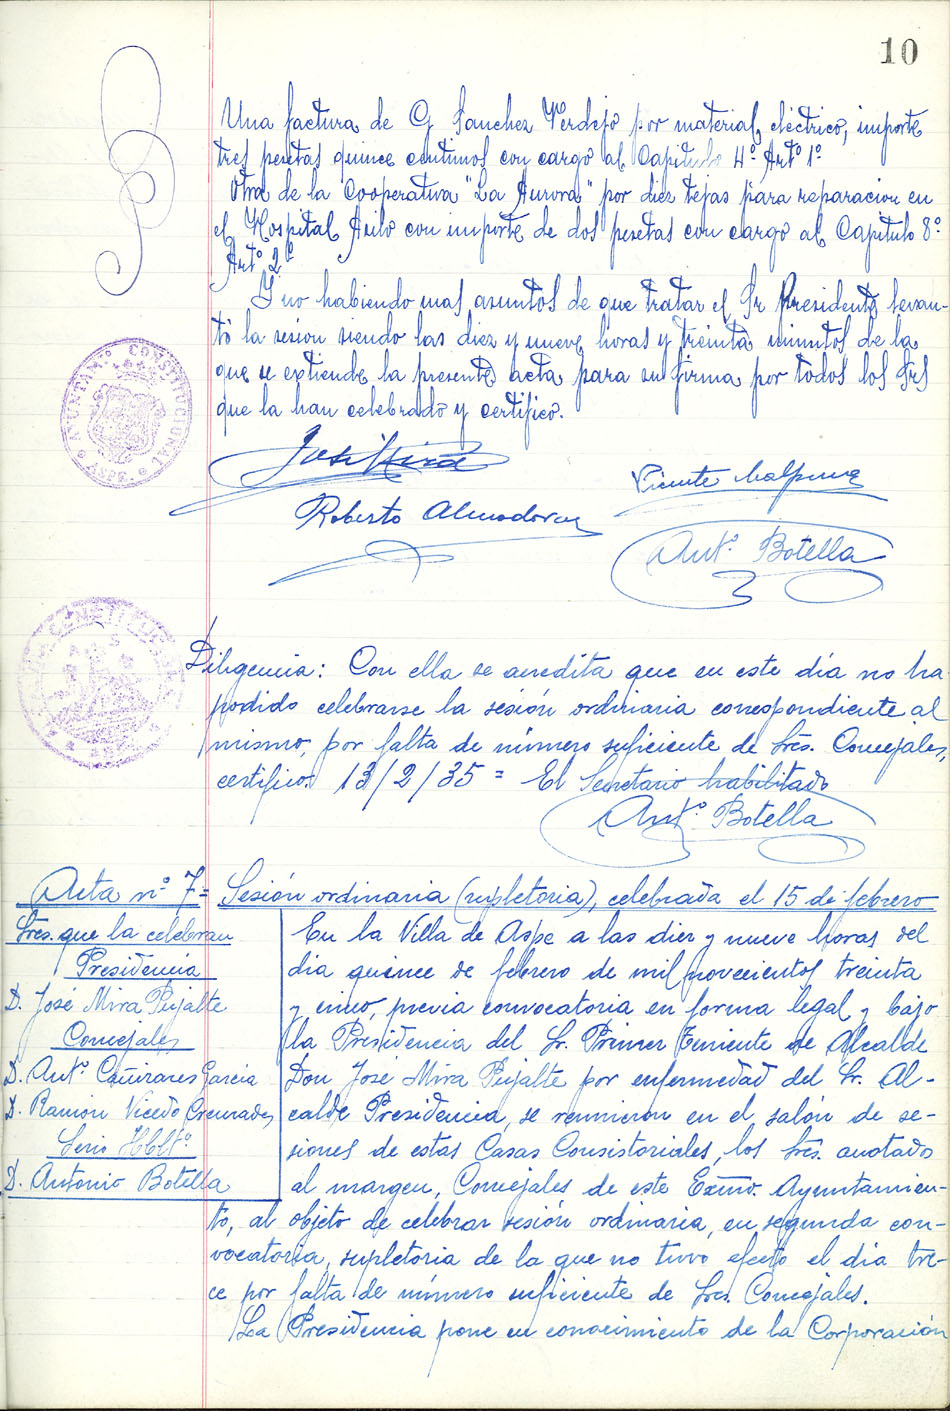 10
Una factura de G Sanchez Verdejo por material eléctrico, importe
tres pesetas quince centimos con cargo al Capitulo 4º Artº 1º
Otra de la Cooperativa "La Aurora" por diez tejas para reparacion en
el Hospital Asilo con importe de dos pesetas con cargo al Capitulo 8º
Artº 2º
Y no habiendo mas asuntos de que tratar el Sr Presidente levan-
tó la sesion siendo las diez y nueve horas y treinta minutos de la
que se extiende la presente acta para su firma por todos los Srs
que la han celebrado y certifico.
AYUNTAMTº CONSTITUCIONAL
ASPE
José Mira
Vicente
Roberto Almodovar
Antº Botella
Diligencia: Con ella se acredita que en este día no ha
podido celebrarse la sesión ordinaria correspondiente al
mismo, por falta de número suficiente de Sres. Concejales,
certifico. 13/2/35 = El Secretario habilitado
Antº Botella
Acta nº 7 = Sesión ordinaria (supletoria), celebrada el 15 de febrero
Sres. que la celebran
Presidencia
D. José Mira Pujalte
Concejales
D. Antº Cañizares García
D. Ramón Vicedo Cremades
Serio Hbltº
D. Antonio Botella
En la Villa de Aspe a las diez y nueve horas del
día quince de febrero de mil novecientos treinta
y cinco, previa convocatoria en forma legal y bajo
la Presidencia del Sr. Primer Teniente de Alcalde
Don José Mira Pujalte por enfermedad del Sr. Al-
calde Presidencia, se reunieron en el salón de se-
siones de estas Casas Consistoriales, los Sres. anotados
al margen, Concejales de este Exmo. Ayuntamien-
to, al objeto de celebrar sesión ordinaria, en segunda con-
vocatoria, supletoria de la que no tuvo efecto el día tre-
ce por falta de número suficiente de Sres. Concejales.
La Presidencia pone en conocimiento de la Corporación